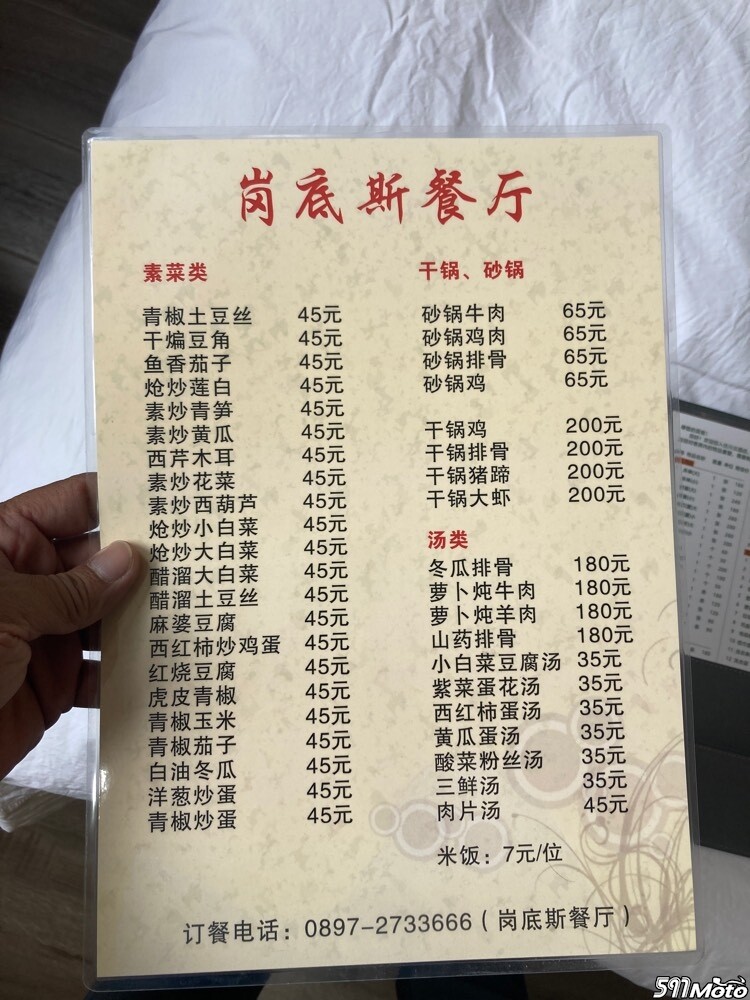 岗底斯餐厅
素菜类
青椒土豆丝 45元
干煸豆角 45元
鱼香茄子 45元
炝炒莲白 45元
素炒青笋 45元
素炒黄瓜 45元
西芹木耳 45元
素炒花菜 45元
素炒西葫芦 45元
炝炒小白菜 45元
炝炒大白菜 45元
醋溜大白菜 45元
醋溜土豆丝 45元
麻婆豆腐 45元
西红柿炒鸡蛋 45元
红烧豆腐 45元
虎皮青椒 45元
青椒玉米 45元
青椒茄子 45元
白油冬瓜 45元
洋葱炒蛋 45元
青椒炒蛋 45元
干锅、砂锅
砂锅牛肉 65元
砂锅鸡肉 65元
砂锅排骨 65元
砂锅鸡 65元
干锅鸡 200元
干锅排骨 200元
干锅猪蹄 200元
干锅大虾 200元
汤类
冬瓜排骨 180元
萝卜炖牛肉 180元
萝卜炖羊肉 180元
山药排骨 180元
小白菜豆腐汤 35元
紫菜蛋花汤 35元
西红柿蛋汤 35元
黄瓜蛋汤 35元
酸菜粉丝汤 35元
三鲜汤 35元
肉片汤 45元
米饭：7元/位
订餐电话：0897-2733666（岗底斯餐厅）
591Moto